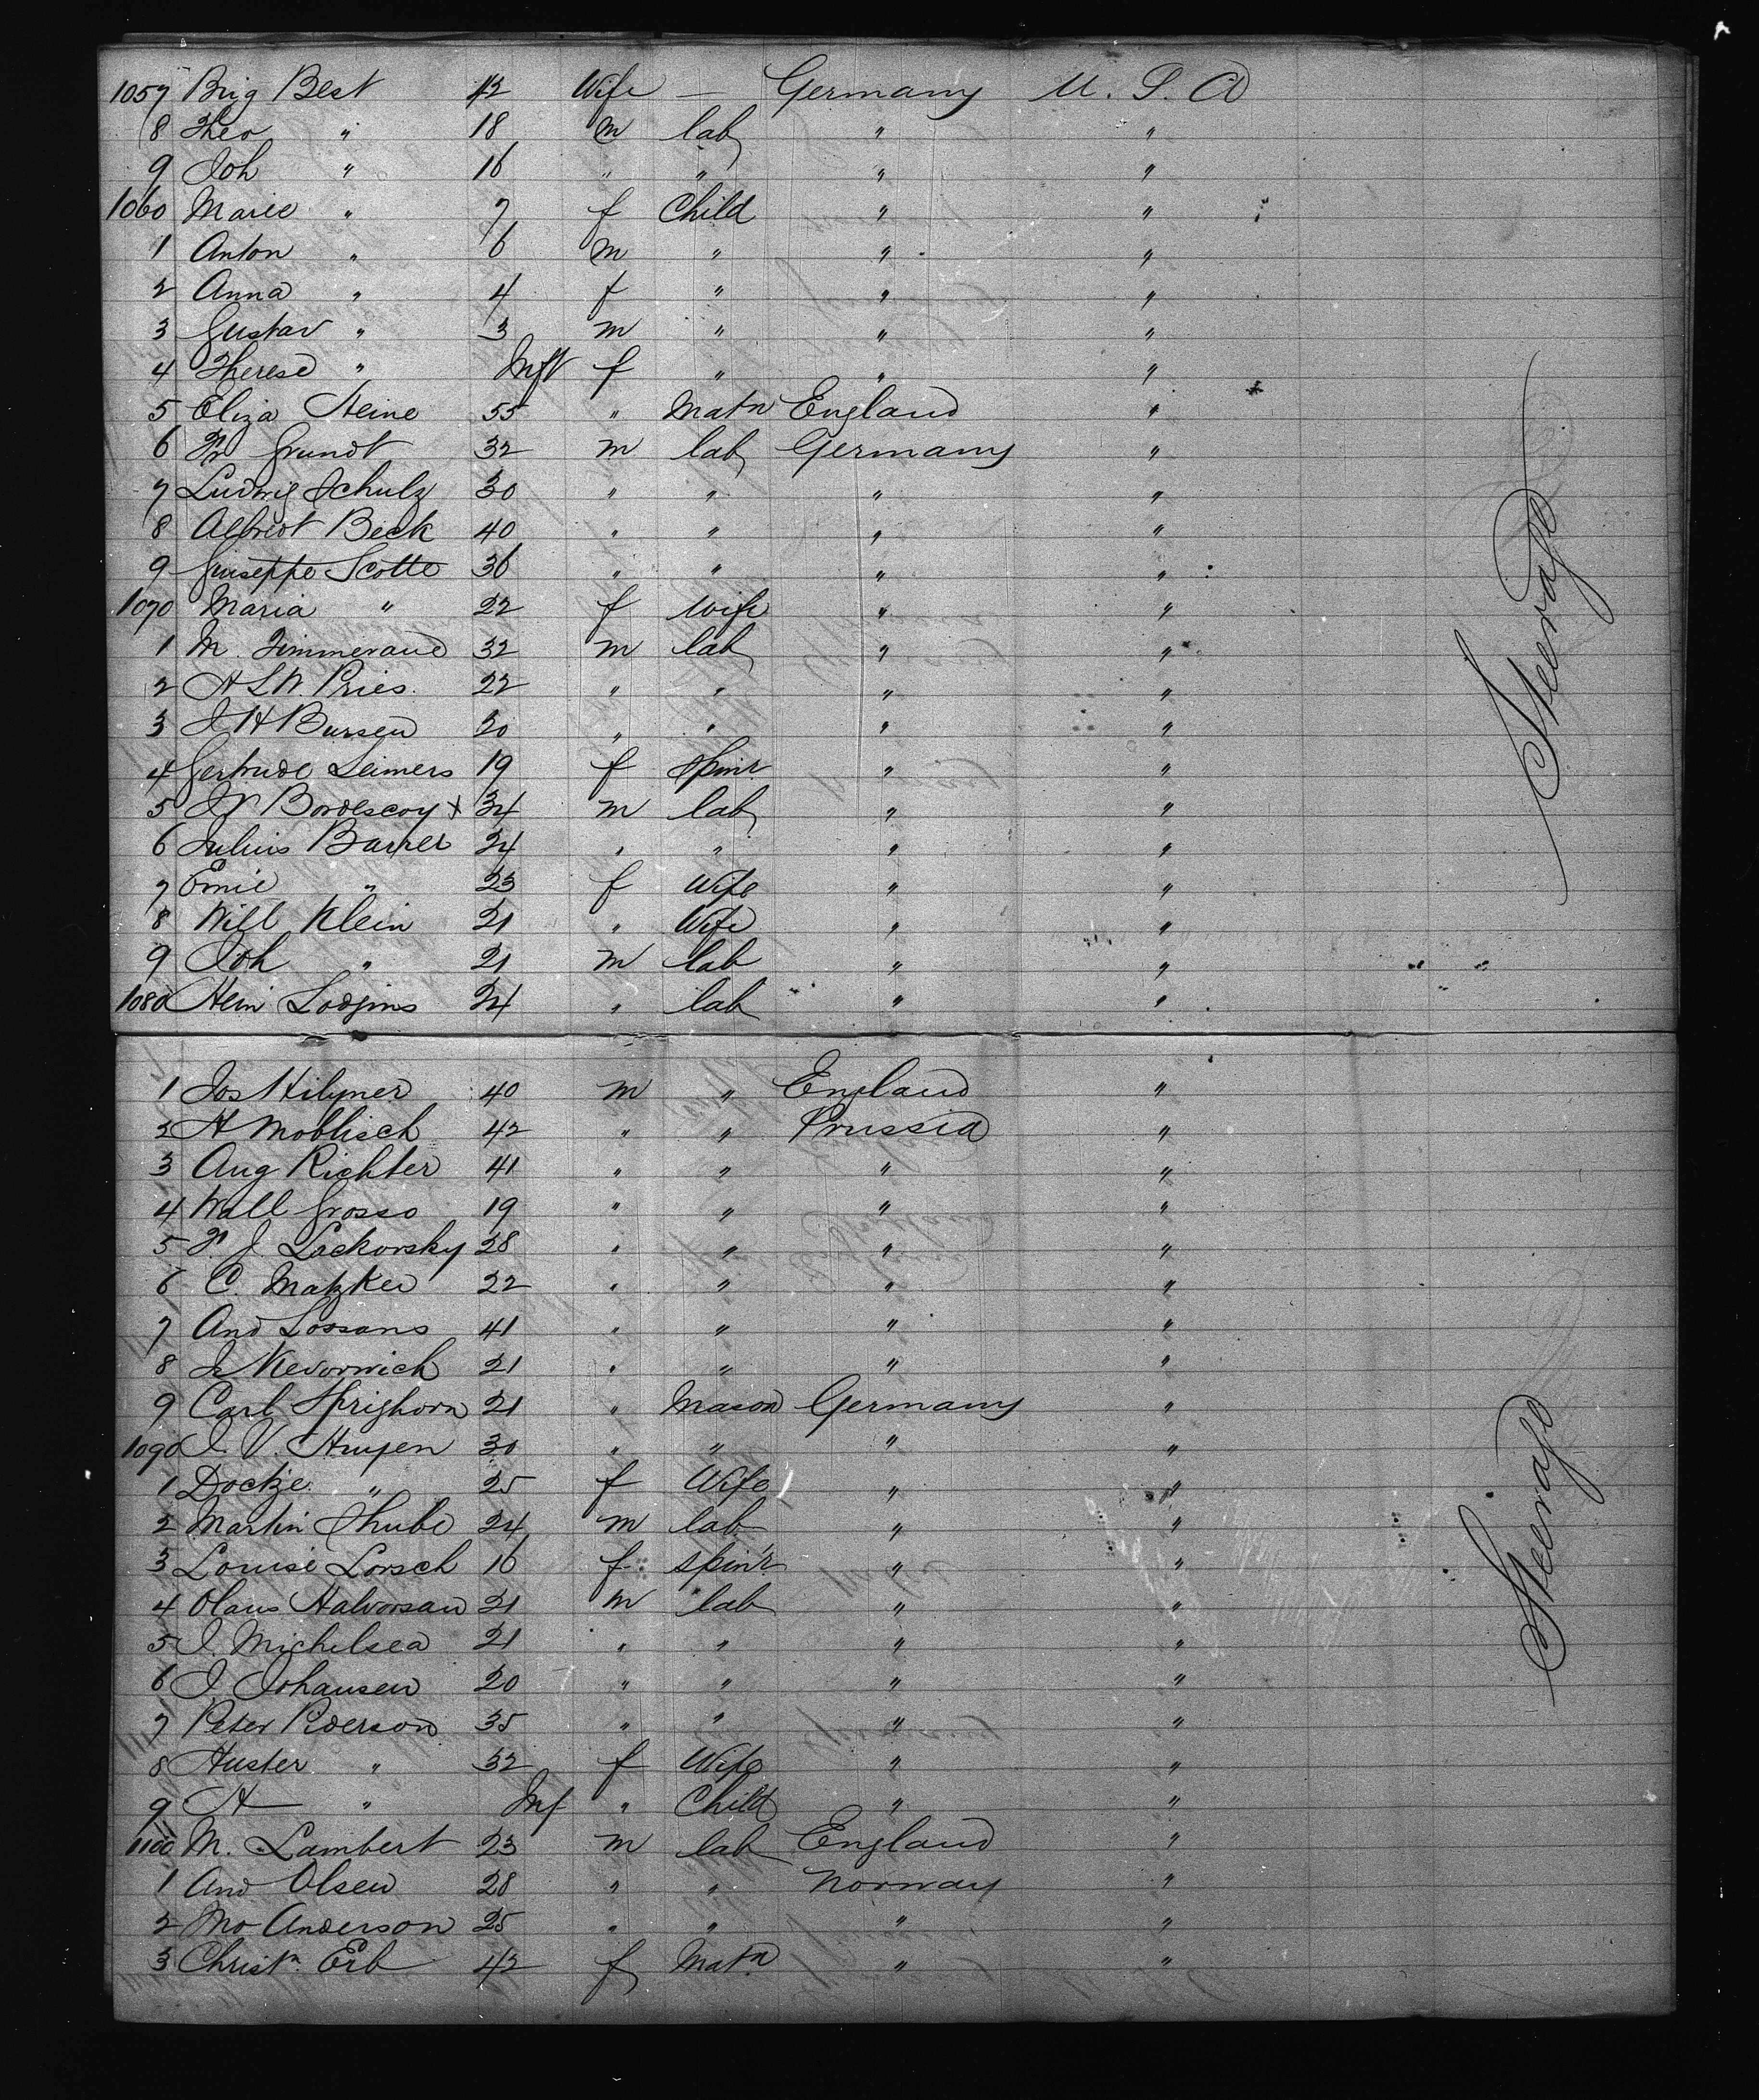 1057 Brig Best 42 Wife — Germany U. S. A
8 Theo " 18 m lab " "
9 Joh " 16 " " " "
1060 Marie " 7 f Child " "
1 Anton " 6 m " " "
2 Anna " 4 f " " "
3 Gustav " 3 m " " "
4 Therese " Inft f " " "
5 Eliza Heine 55 " Matn England "
6 Fr Grundt 32 m lab Germany "
7 Ludwig Schulz 30 " " " "
8 Albredt Beck 40 " " " "
9 Giuseppe Scotte 36 " " " "
1070 Maria " 22 f Wife " "
1 M. 32 m lab " "
2 H L W. Pries. 22 " " " "
3 J H Bursen 20 " " " "
4 Gertrude Leimers 19 f Spinr " "
5 Bordescoy x 34 m lab " "
6 Julius Barrer 24 " " " "
7 Emie " 23 f Wife " "
8 Will Klein 21 " Wife " "
9 Joh " 21 m lab " "
1080 Hein Lodjins 24 " lab " "
Steerage
1 Jos Hilyner 40 m " England "
2 H Moblisch 42 " " Prussia "
3 Aug Richter 41 " " " "
4 Wall Grosso 19 " " " "
5 F. J. Lackorsky 28 " " " "
6 C. Matzker 22 " " " "
7 And Lossans 41 " " " "
8 21 " " " "
9 Carl Sprighorn 21 " Mason Germany "
1090 J. V. Huyen 30 " " " "
1 Dockje " 25 f Wife " "
2 Martin Shube 24 m lab " "
3 Louise Lorsch 16 f Spin'r " "
4 Olaus Halvorsan 21 m lab " "
5 J. Michelsea 21 " " " "
6 J. Johansen 20 " " " "
7 Peter Pederson 35 " " " "
8 Huster " 32 f Wife " "
9 A " Inf " Child " "
1100 M. Lambert 23 m lab England "
1 And Olsen 28 " " Norway "
2 Mo Anderson 25 " " " "
3 Christn. Erb 42 f Matn " "
Steerage